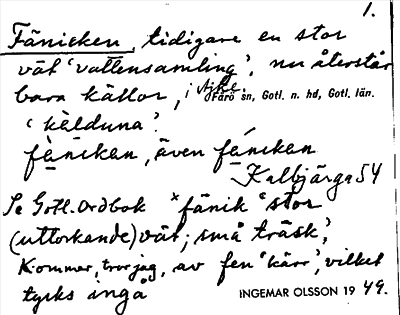 1.
Fänicken, tidigare en stor
vät 'vattensamling', nu återstår
bara källor, i Ajke.
Fårö sn, Gotl. n. hd, Gotl. län.
'kälduna'.
fäniken, även féniken
Kalbjärga 54
Se Gotl. Ordbok *fänik "stor
(uttorkande) vät; små träsk',
Kommer, tror jag, av fen 'kärr', vilket
tycks ingå
INGEMAR OLSSON 19 49.